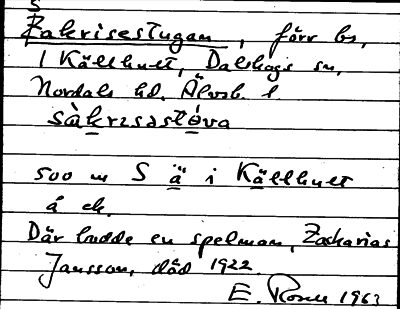 S
Zakrisestugan, förr bs,
1 Källhult, Dalskogs sn,
Nordals hd. Älvsb. l
sàkrɪsastóva
500 m S ä i Källhult
å ek.
Där bodde en spelman, Zackarias
Jansson, död 1922.
E. 1963